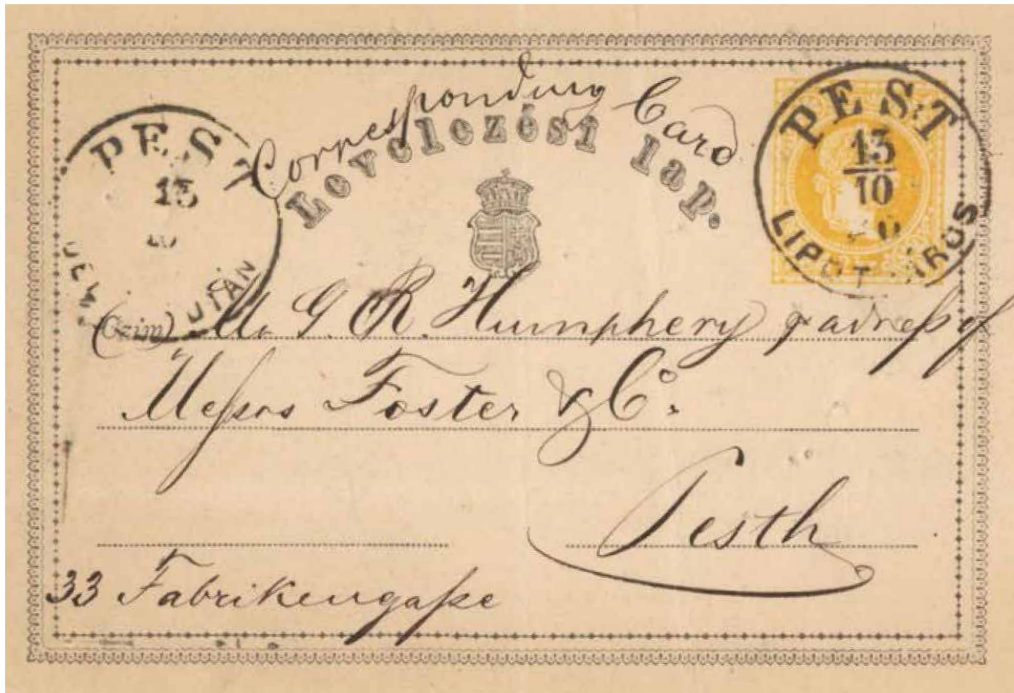 Corresponding Card
Levelezési lap.
PEST
13
10
PEST
13
10
LIPÓTVÁROS
(Czim) Mr G. R. Humphery p adress of
Messrs Foster & Co.
Pesth
33 Fabrikengasse